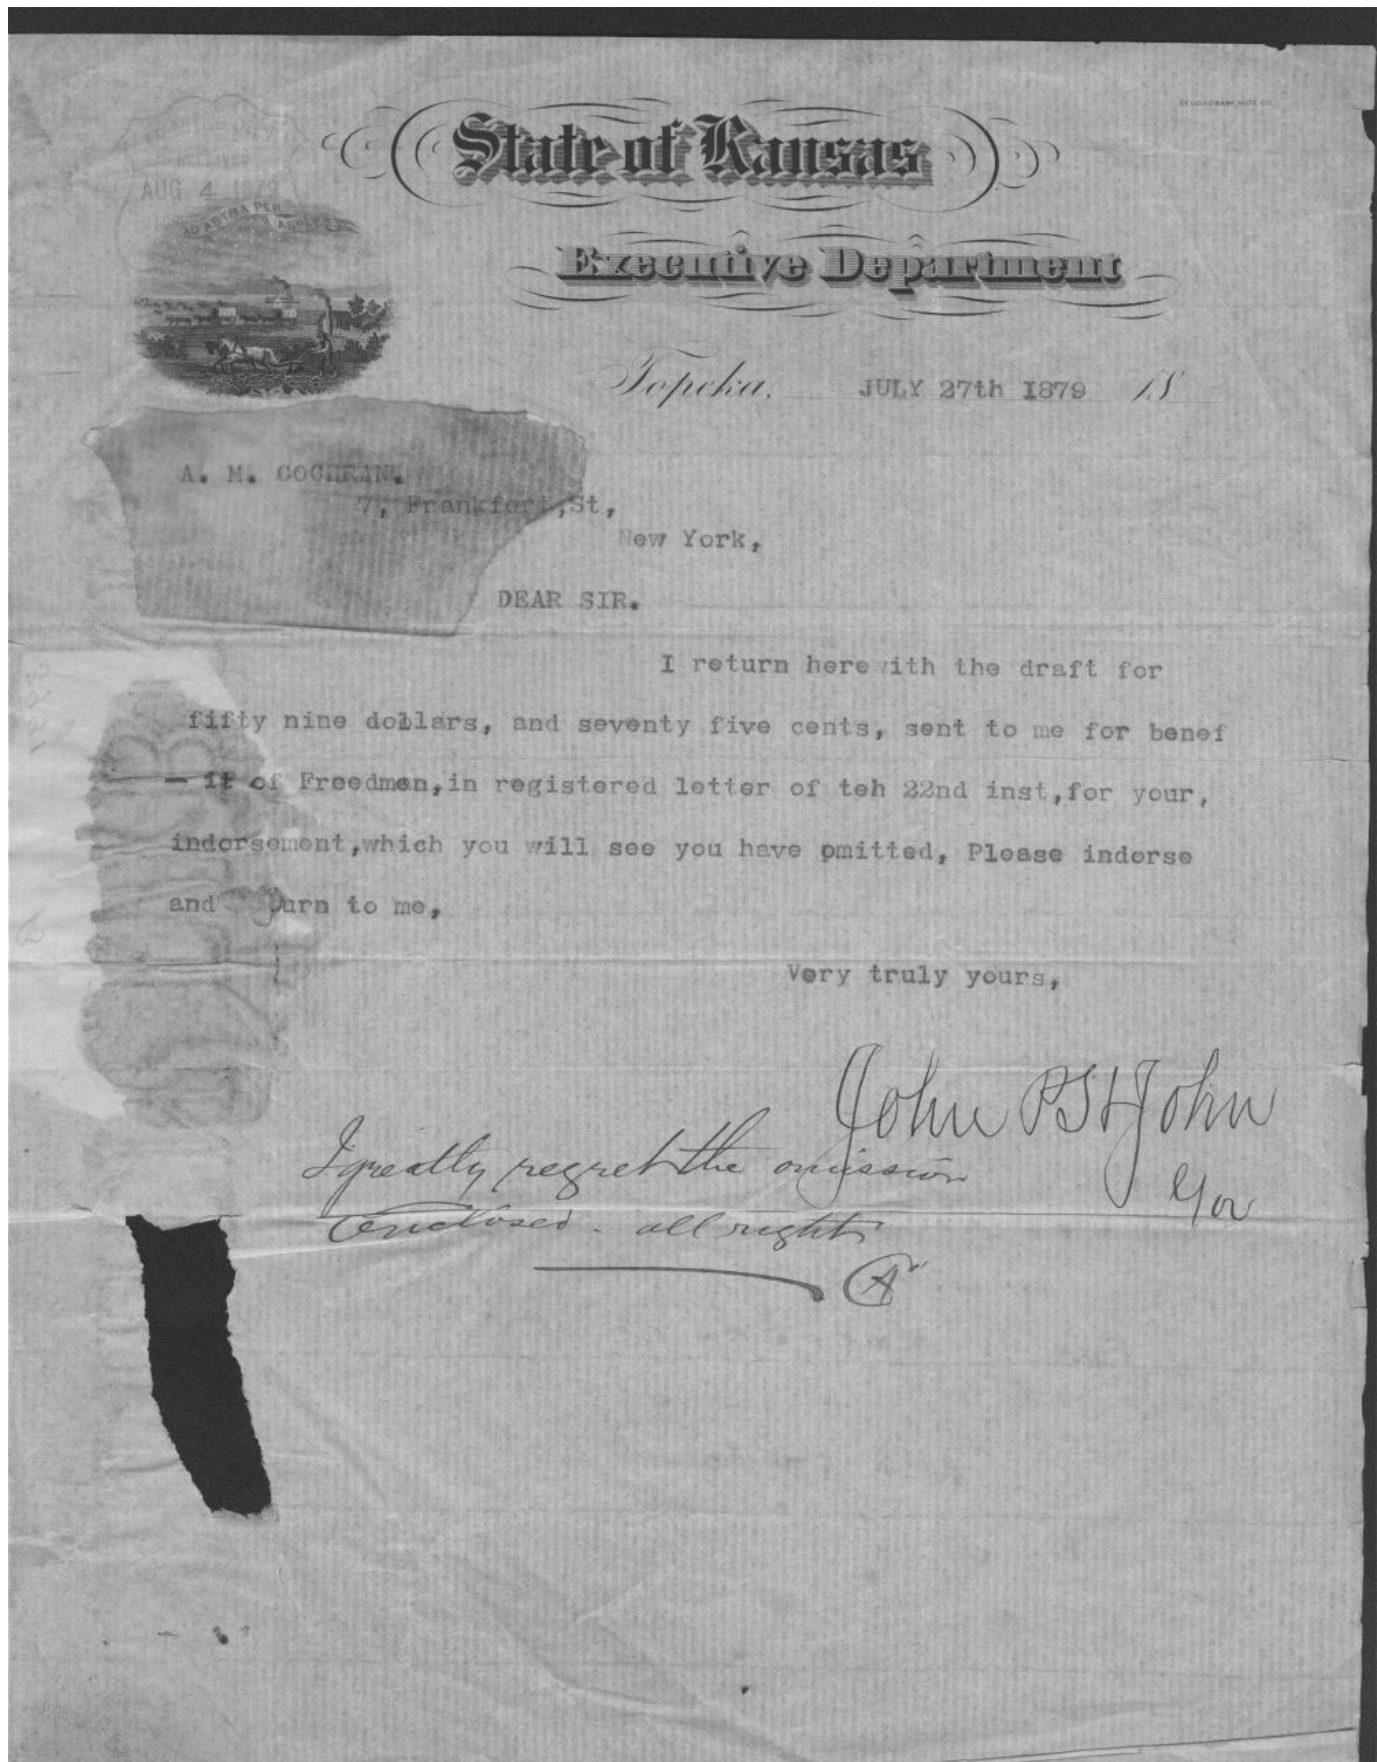 ST LOUIS BANK NOTE CO.
State of Kansas
RECEIVED
AUG 4 1879
AD ASTRA PER
ASPERA
Executive Department
Topeka, JULY 27th 1879 18
A. M. COCHRAN.
7, Frankfort,St,
New York,
DEAR SIR.
I return herewith the draft for
fifty nine dollars, and seventy five cents, sent to me for benef
- it of Freedmen,in registered letter of teh 22nd inst,for your,
indorsement,which you will see you have omitted, Please indorse
and urn to me,
Very truly yours,
John P St John
Gov
I greatly regret the omission
Enclosed. all right
A